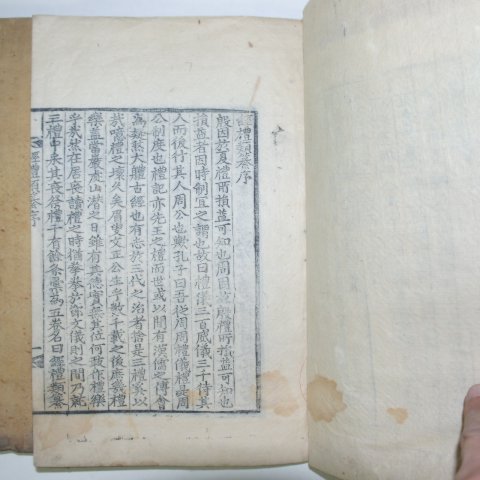 經禮類纂序
殷因於夏禮所損益可知也周因於殷禮所損益可知也
損益者因時制宜之謂也故曰禮儀三百威儀三千待其
人而後行其人周公也與孔子曰吾從周周禮儀禮皆周
公制度也禮記亦先王之禮而世或以間有漢儒之傅會
為疑然大體古經也有志於三代之治者當是三禮之以
哉噫禮之壞久矣眉叟文正公生乎數千載之後庶幾禮
樂蓋當 山潛之日雖有其德實無其位何我作禮樂
乎我然在居喪讀禮之時猶拳拳於節文儀則之間乃就
三禮中來其喪祭禮千有餘条彙為五卷名曰經禮類纂
經禮類纂序
一